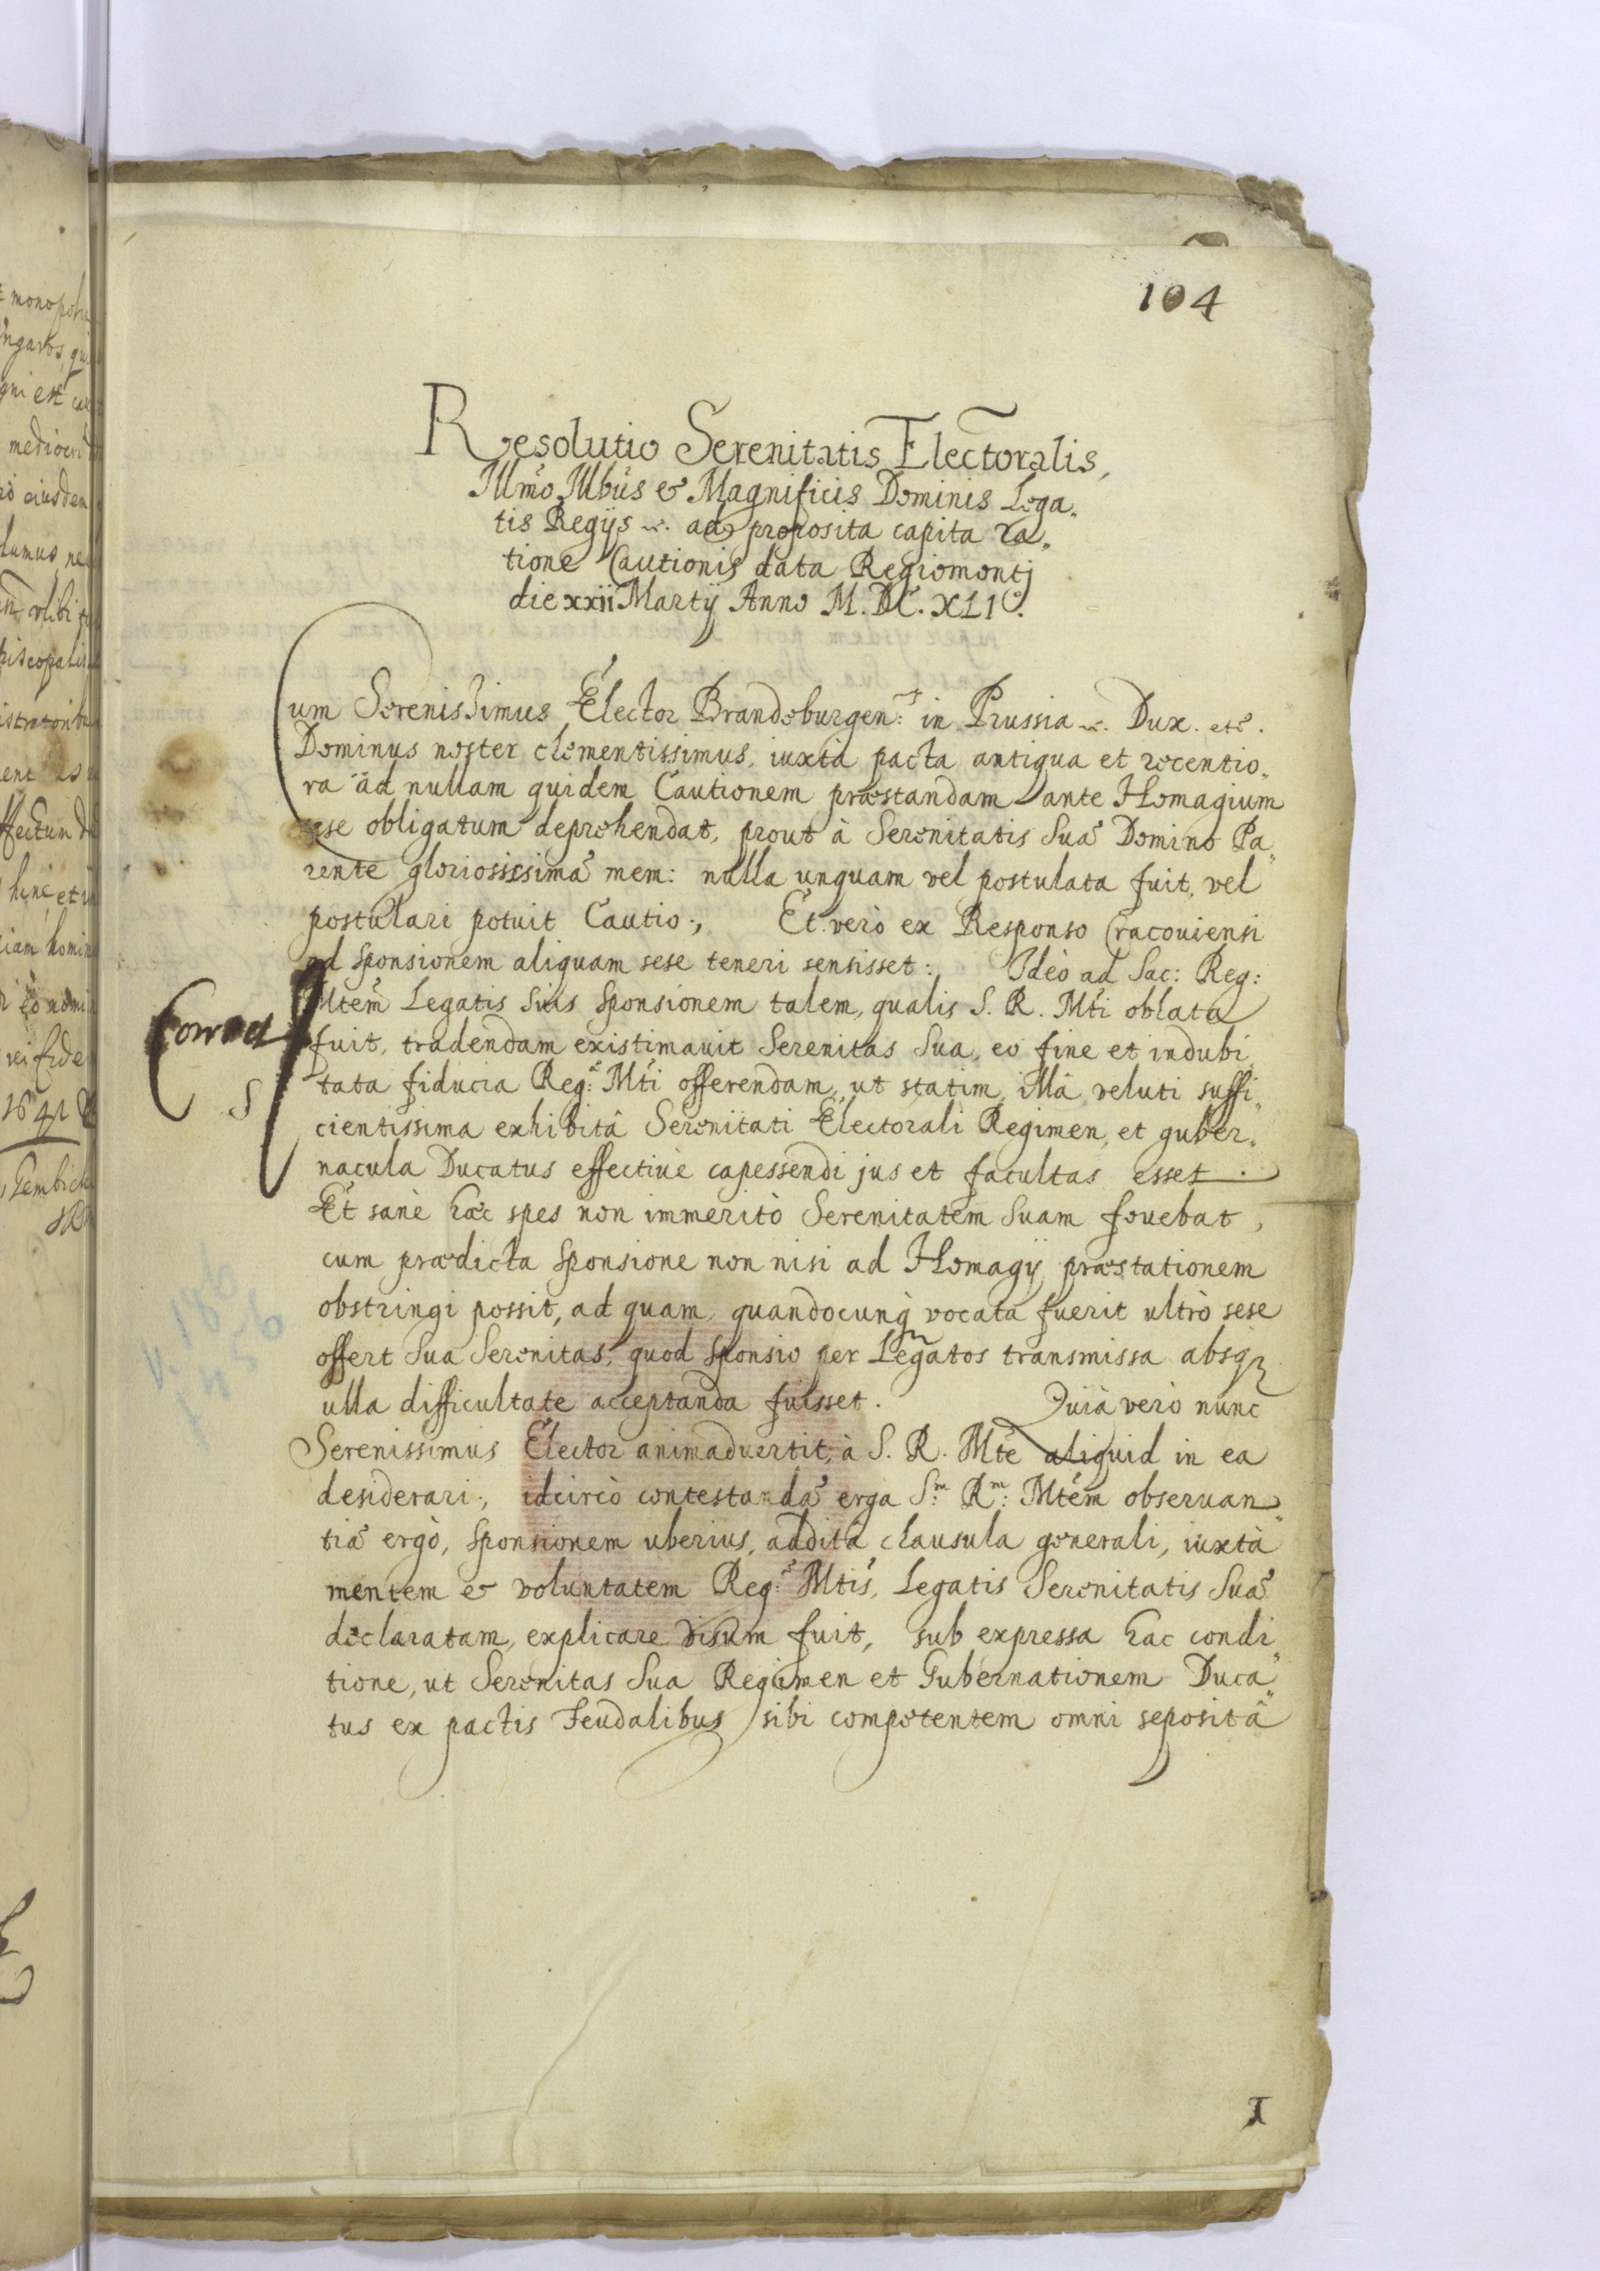 104
Resolutio Serenitatis Electoralis,
Illmo Illbus & Magnificis Dominis Lega„
tis Regijs etc. ad proposita capita ra„
tione Cautionis data Regiomontj
die xxii Martij Anno M.DC.XLI°.
Cum Serenissimus Elector Brandeburgen: in Prussia etc. Dux. etc.
Dominus noster clementissimus, iuxtà pacta antiqua et recentio„
ra ad nullam quidem Cautionem præstandam ante Homagium
sese obligatum deprehendat, prout à Serenitatis Suæ Domino Pa„
rente gloriosissimæ mem: nulla unquam vel postulata fuit, vel
postulari potuit Cautio; Et verò ex Responso Cracouiensi
ad sponsionem aliquam sese teneri sensisset: Ideò ad Sac: Reg:
Mtem Legatis Suis Sponsionem talem, qualis S. R. Mti oblata
fuit, tradendam existimauit Serenitas Sua, eo fine et indubi„
tata fiducia Reg: Mti offerendam, ut statim, illâ veluti suffi„
cientissima exhibitâ Serenitati Electorali Regimen, et guber„
nacula Ducatus effectiuè capessendi jus et facultas esset.
Et sanè hæc spes non immeritò Serenitatem Suam fouebat,
cum prædicta Sponsione non nisi ad Homagij præstationem
obstringi possit, ad quam, quandocunq vocata fuerit ultrò sese
offert Sua Serenitas, quod Sponsio per Legatos transmissa absq
ulla difficultate acceptanda fuisset. Quià verò nunc
Serenissimus Elector animaduertit, à S. R. Mte aliquid in ea
desiderari; idcircò contestandæ erga S.m R.m: Mtem obseruan„
tiæ ergò, Sponsionem uberius, additâ clausula generali, iuxtà
mentem & voluntatem Reg: Mtis, Legatis Serenitatis Suæ
declaratam, explicare visum fuit, sub expressa hac condi„
tione, ut Serenitas Sua Regimen et Gubernationem Duca„
tus ex pactis Feudalibus sibi competentem omni sepositâ
I